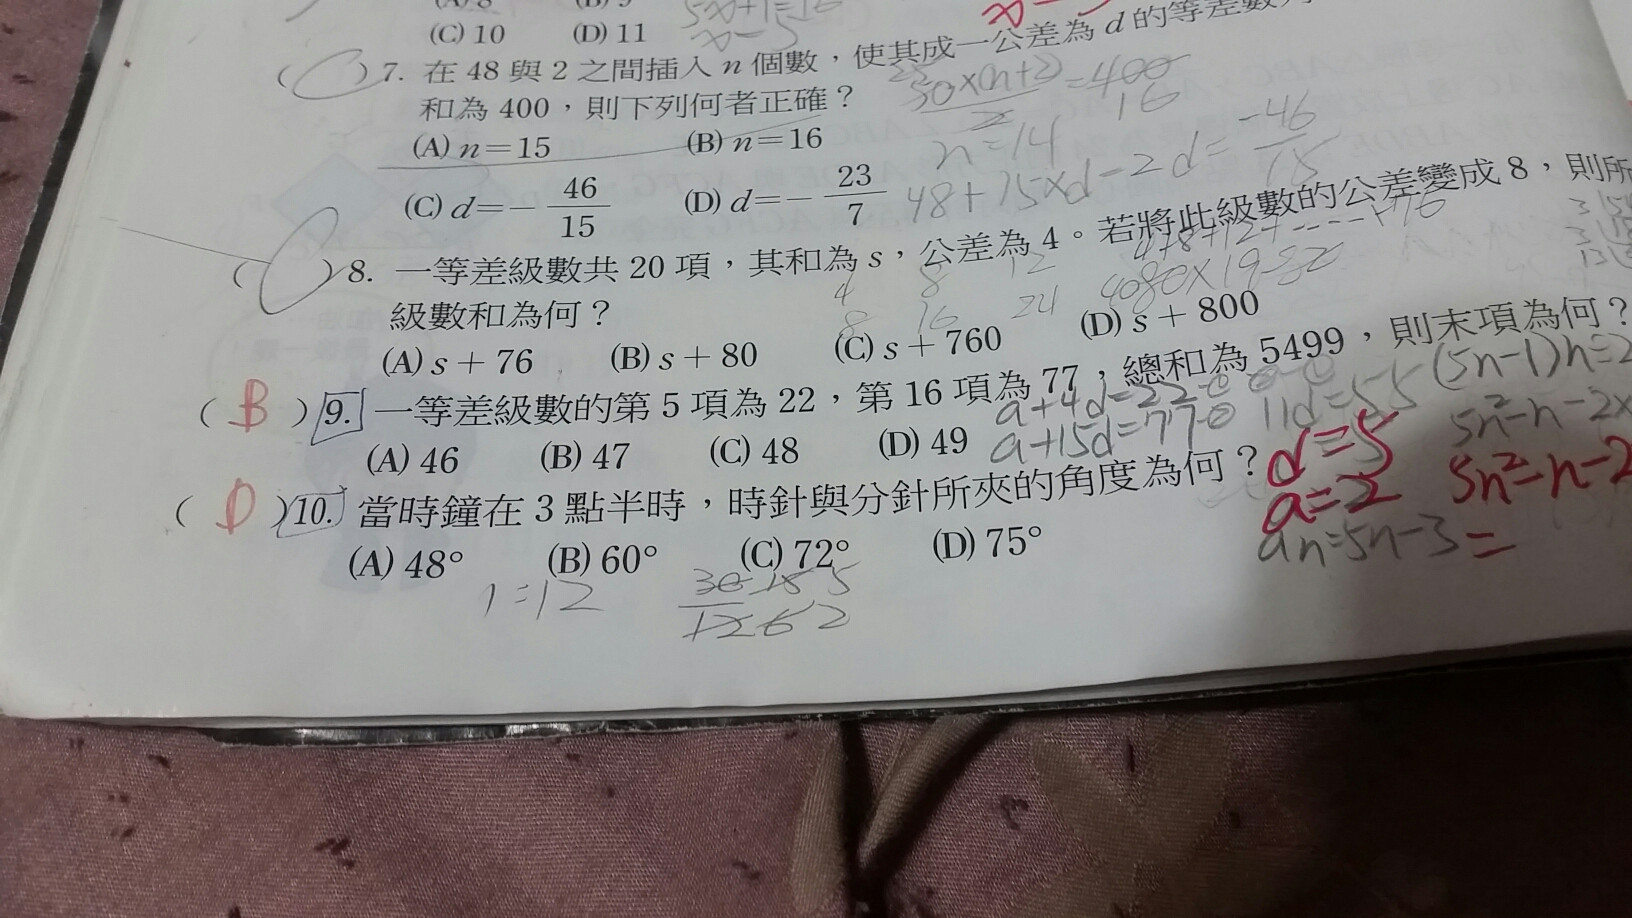 (C) 10 (D) 11
7. 在 48 與 2 之間插入 n 個數，使其成一公差為 d 的等差數
和為 400，則下列何者正確？
(A) n＝15 (B) n＝16
(C) d＝－46/15 (D) d＝－23/7
n=14
48+15×d=2 d=-46/15
8. 一等差級數共 20 項，其和為 s，公差為 4。若將此級數的公差變成 8，則所
級數和為何？
4 8 12
8 16 24
(A) s + 76 (B) s + 80 (C) s + 760 (D) s + 800
( B ) 9. 一等差級數的第 5 項為 22，第 16 項為 77，總和為 5499，則末項為何？
(A) 46 (B) 47 (C) 48 (D) 49
a+4d=22
a+15d=77
11d=55
d=5
a=2
an=5n-3
(5n-1)n=2
5n²-n-2
5n²-n-2
( D ) 10. 當時鐘在 3 點半時，時針與分針所夾的角度為何？
(A) 48° (B) 60° (C) 72° (D) 75°
1=12